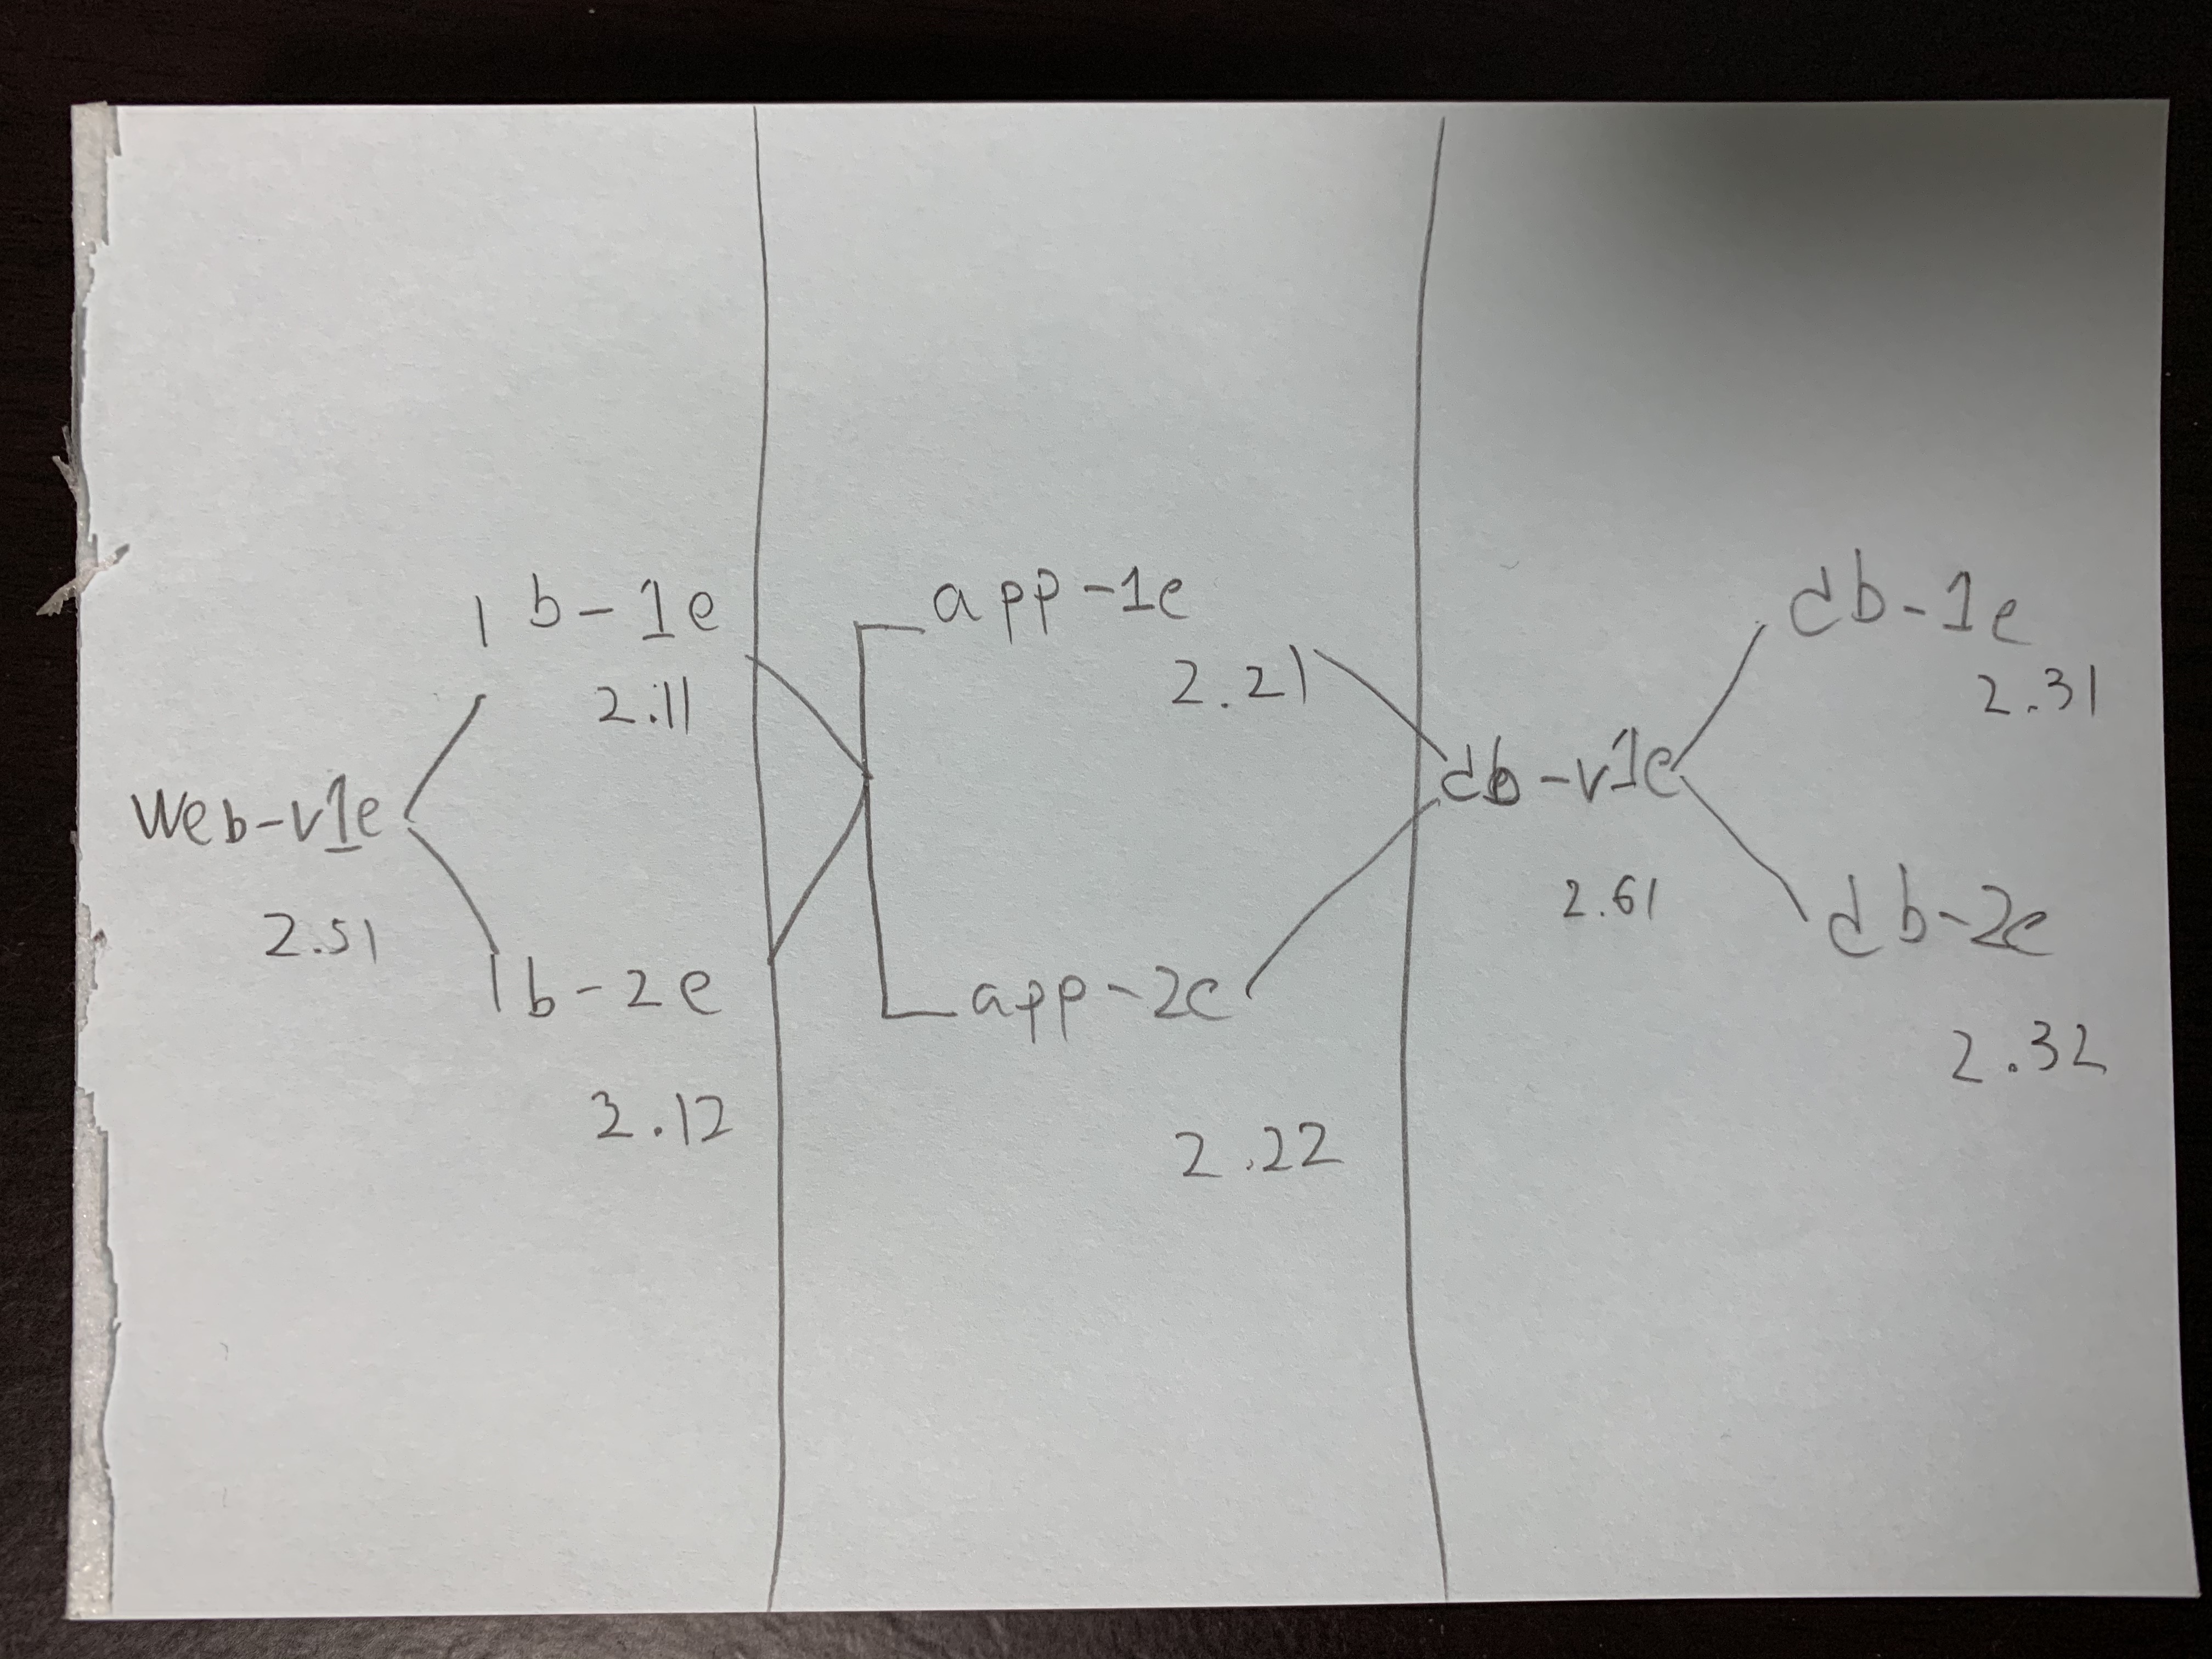 lb-1e
2.11
web-v1e
2.51
lb-2e
2.12
app-1e
2.21
app-2e
2.22
db-v1e
2.61
db-1e
2.31
db-2e
2.32